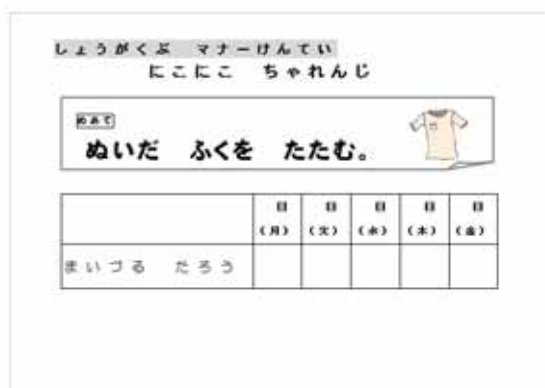 しょうがくぶ　マナーけんてい
にこにこ　ちゃれんじ
めあて
ぬいだ　ふくを　たたむ。
日 日 日 日 日
（月） （火） （水） （木） （金）
まいづる　たろう